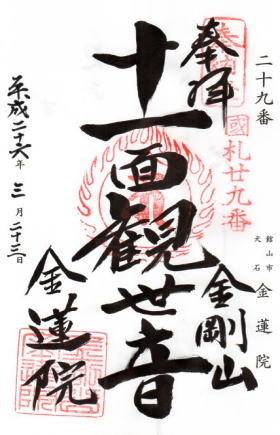 二十九番
館山市
犬石
金蓮院
奉拝
國札廿九番
金剛山
十一面観世音
金蓮院
平成二十六年三月二十三日